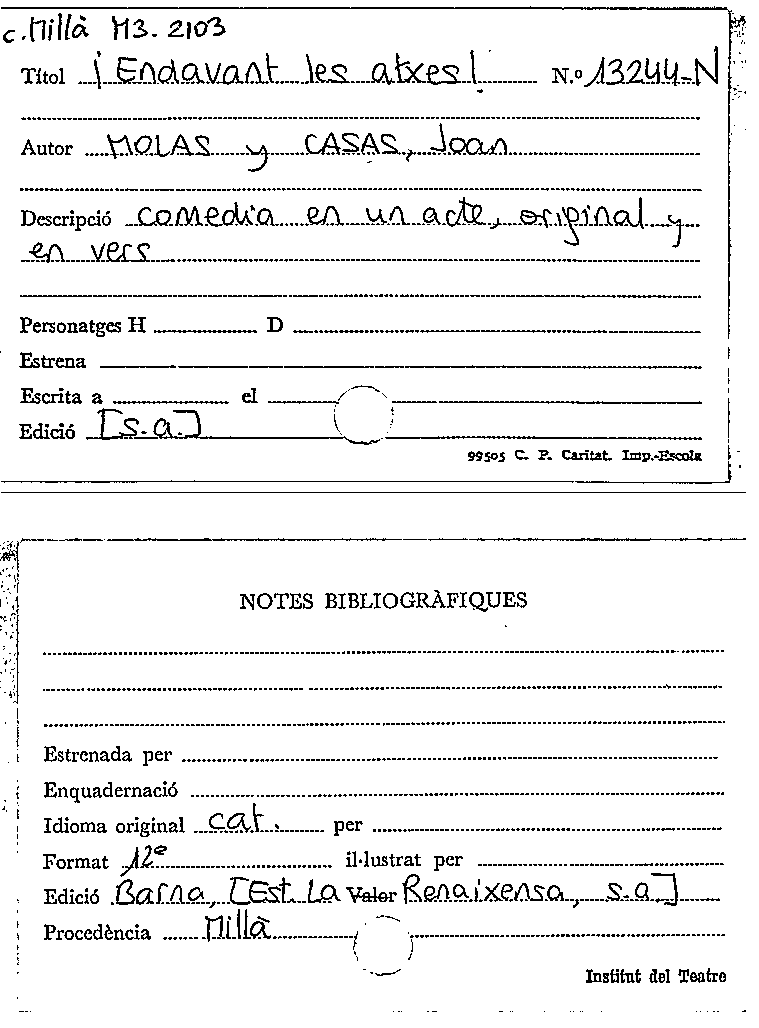 c. Millà M3. 2103
Títol ¡Endavant les atxes! N.º 13244-N
Autor MOLAS y CASAS, Joan
Descripció comedia en un acte, original y
en vers
Personatges H D
Estrena
Escrita a el
Edició [s.a.]
99505 C. P. Caritat. Imp.-Escola
NOTES BIBLIOGRÀFIQUES
Estrenada per
Enquadernació
Idioma original cat. per
Format 12º il·lustrat per
Edició Barna, [Est. La Valor Renaixensa, s.a.]
Procedència Millà
Institut del Teatre